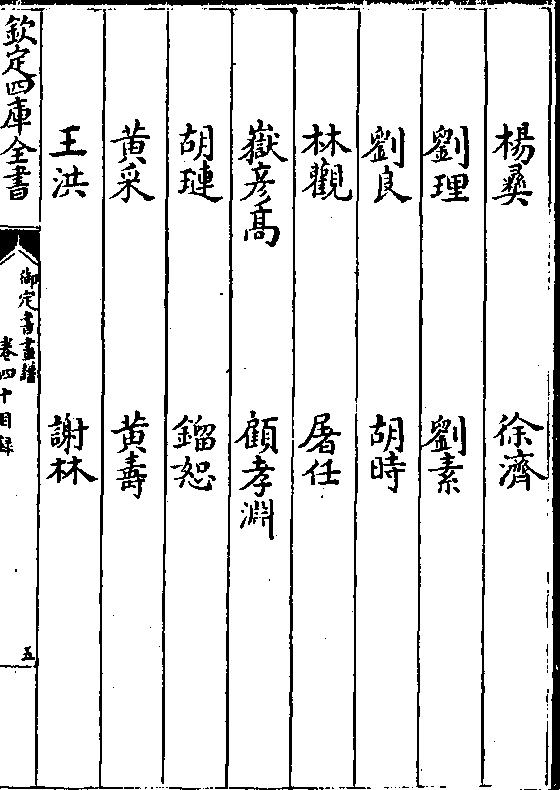 楊彝　徐濟
劉理　劉素
劉良　胡時
林觀　屠任
嶽彦髙　顧孝淵
胡璉　鎦恕
黄采　黄壽
王洪　謝林
欽定四庫全書
御定書畫譜
卷四十目録
五